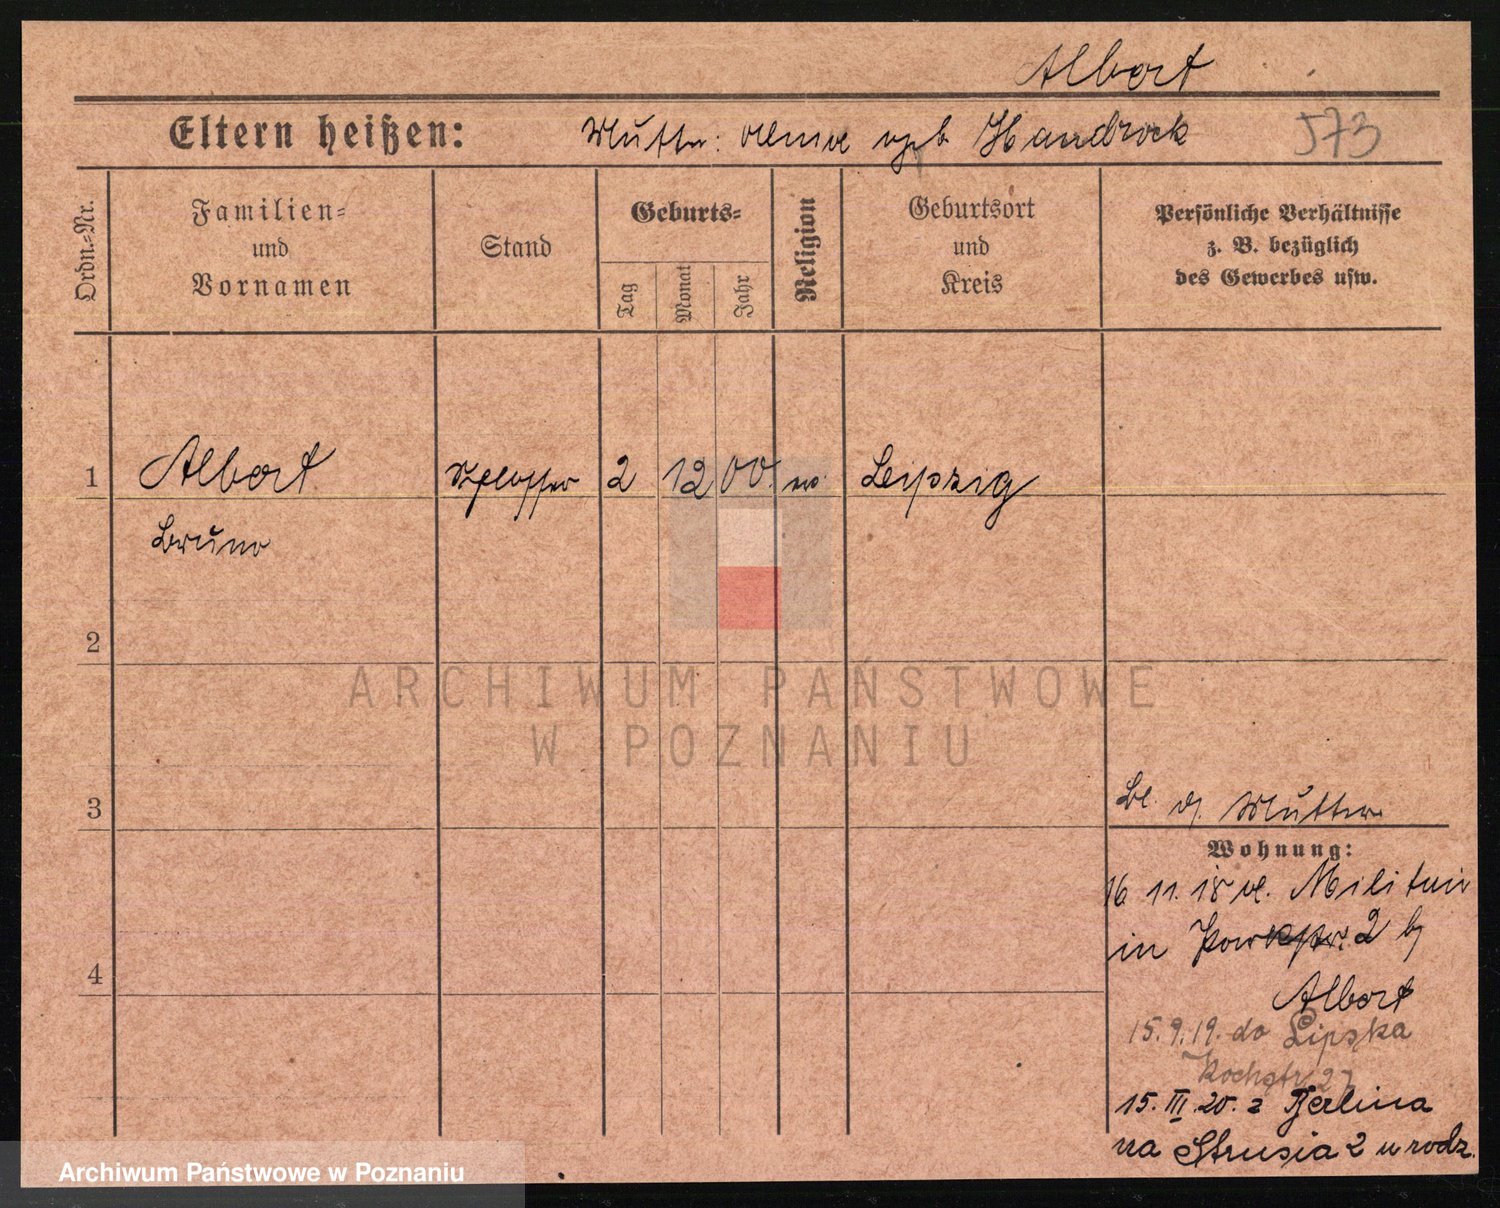 Albert
Eltern heißen: Mutter: Alma geb Handrock 573
Ordn.=Nr.
Familien=
und
Vornamen
Stand
Geburts=
Tag
Monat
Jahr
Religion
Geburtsort
und
Kreis
Persönliche Verhältnisse
z. B. bezüglich
des Gewerbes usw.
1 Albert Schlosser 2 12 00. ev. Leipzig
Bruno
2
ARCHIWUM PAŃSTWOWE
W POZNANIU
3
Bl. Mutter
Wohnung:
4
16 11. 18 v. Militair
in 2 b/
Albert
15.9.19. do Lipska
Kochstr 27
15. III. 20. z Berlina
na Strusia 2 u rodz.
Archiwum Państwowe w Poznaniu